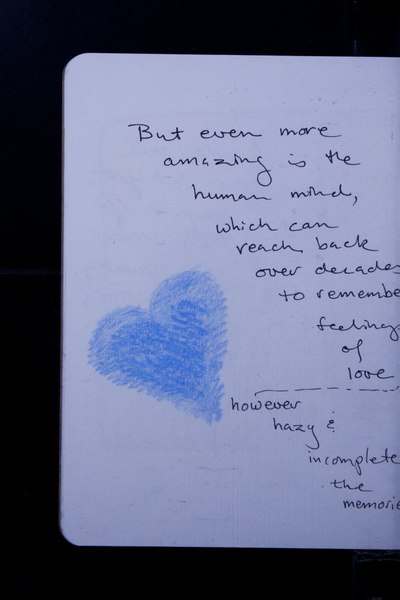 But even more
amazing is the
human mind,
which can
reach back
over decades
to remembe
feelings
of
love
however
hazy &
incomplete
the
memorie